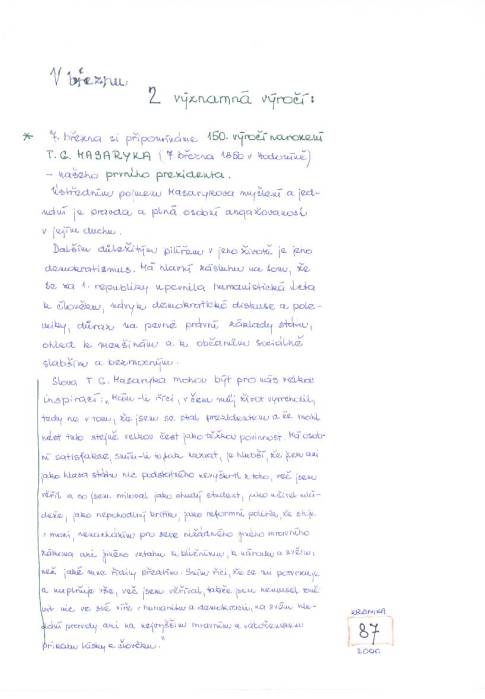 V březnu
2 významná výročí:
* 7. března si připomínáme 150. výročí narození
T. G. MASARYKA (7. března 1850 v Hodoníně)
- našeho prvního prezidenta.
Ústředním pojmem Masarykova myšlení a jed-
nání je pravda a plná osobní angažovanost
v jejím duchu.
Dalším důležitým pilířem v jeho životě je jeho
demokratismus. Má hlavní zásluhu na tom, že
se za 1. republiky upevnila humanistická úcta
k člověku, návyk demokratické diskuse a pole-
miky, důraz na pevné právní základy státu,
ohled k menšinám a k občanům sociálně
slabším a bezmocným.
Slova T. G. Masaryka mohou být pro nás velkou
inspirací: „Mám-li říci, v čem můj život vyvrcholil,
tedy ne v tom, že jsem se stal prezidentem a že mohl
nést tuto stejně velkou čest jako těžkou povinnost. Má osob-
ní satisfakce, smím-li to tak nazvat, je hlubší, že jsem ani
jako hlava státu nic podstatného nevyškrtl z toho, več jsem
věřil a co jsem miloval jako chudý student, jako učitel mlá-
deže, jako nepohodlný kritik, jako reformní politik, že stoje
v moci, nenacházím pro sebe nižádného jiného mravního
zákona ani jiného vztahu k bližnímu, k národu a světu,
než jaké mne řídily předtím. Smím říci, že se mi potvrzuje
a naplňuje vše, več jsem věřil, takže jsem nemusel změ-
nit nic ve své víře v humanitu a demokracii, na svém hle-
dání pravdy ani na nejvyšším mravním a náboženském
příkazu lásky k člověku."
KRONIKA
87
2000